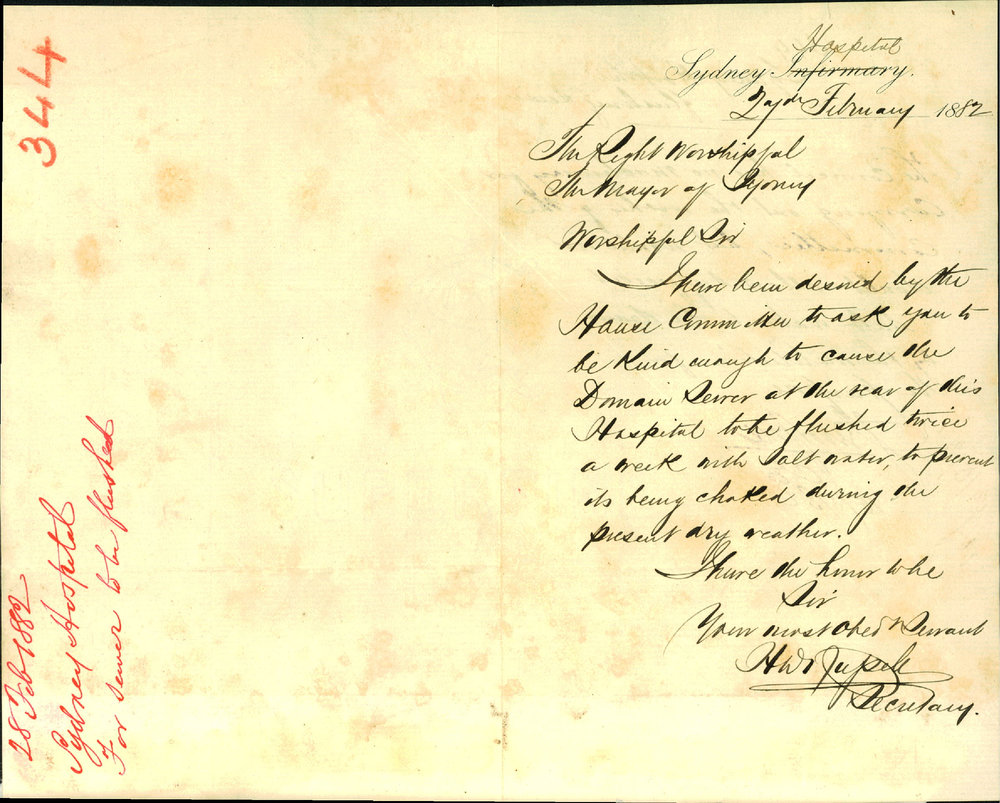 344
28 Feb 1882
Sydney Hospital
For sewer to be flushed
Hospital
Sydney Infirmary.
27th February 1882
The Right Worshipful
The Mayor of Sydney
Worshipful Sir
I have been desired by the
House Committee to ask you to
be kind enough to cause the
Domain Sewer at the rear of this
Hospital to be flushed twice
a week with salt water, to prevent
its being choked during the
present dry weather.
I have the honor to be
Sir
Your most obedt Servant
Secretary.